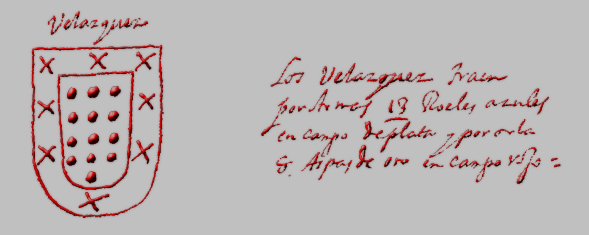 Velazquez
Los Velazquez traen
por Armas 13 Roeles azules
en campo de plata y por orla
8. Aspas de oro en campo rojo =